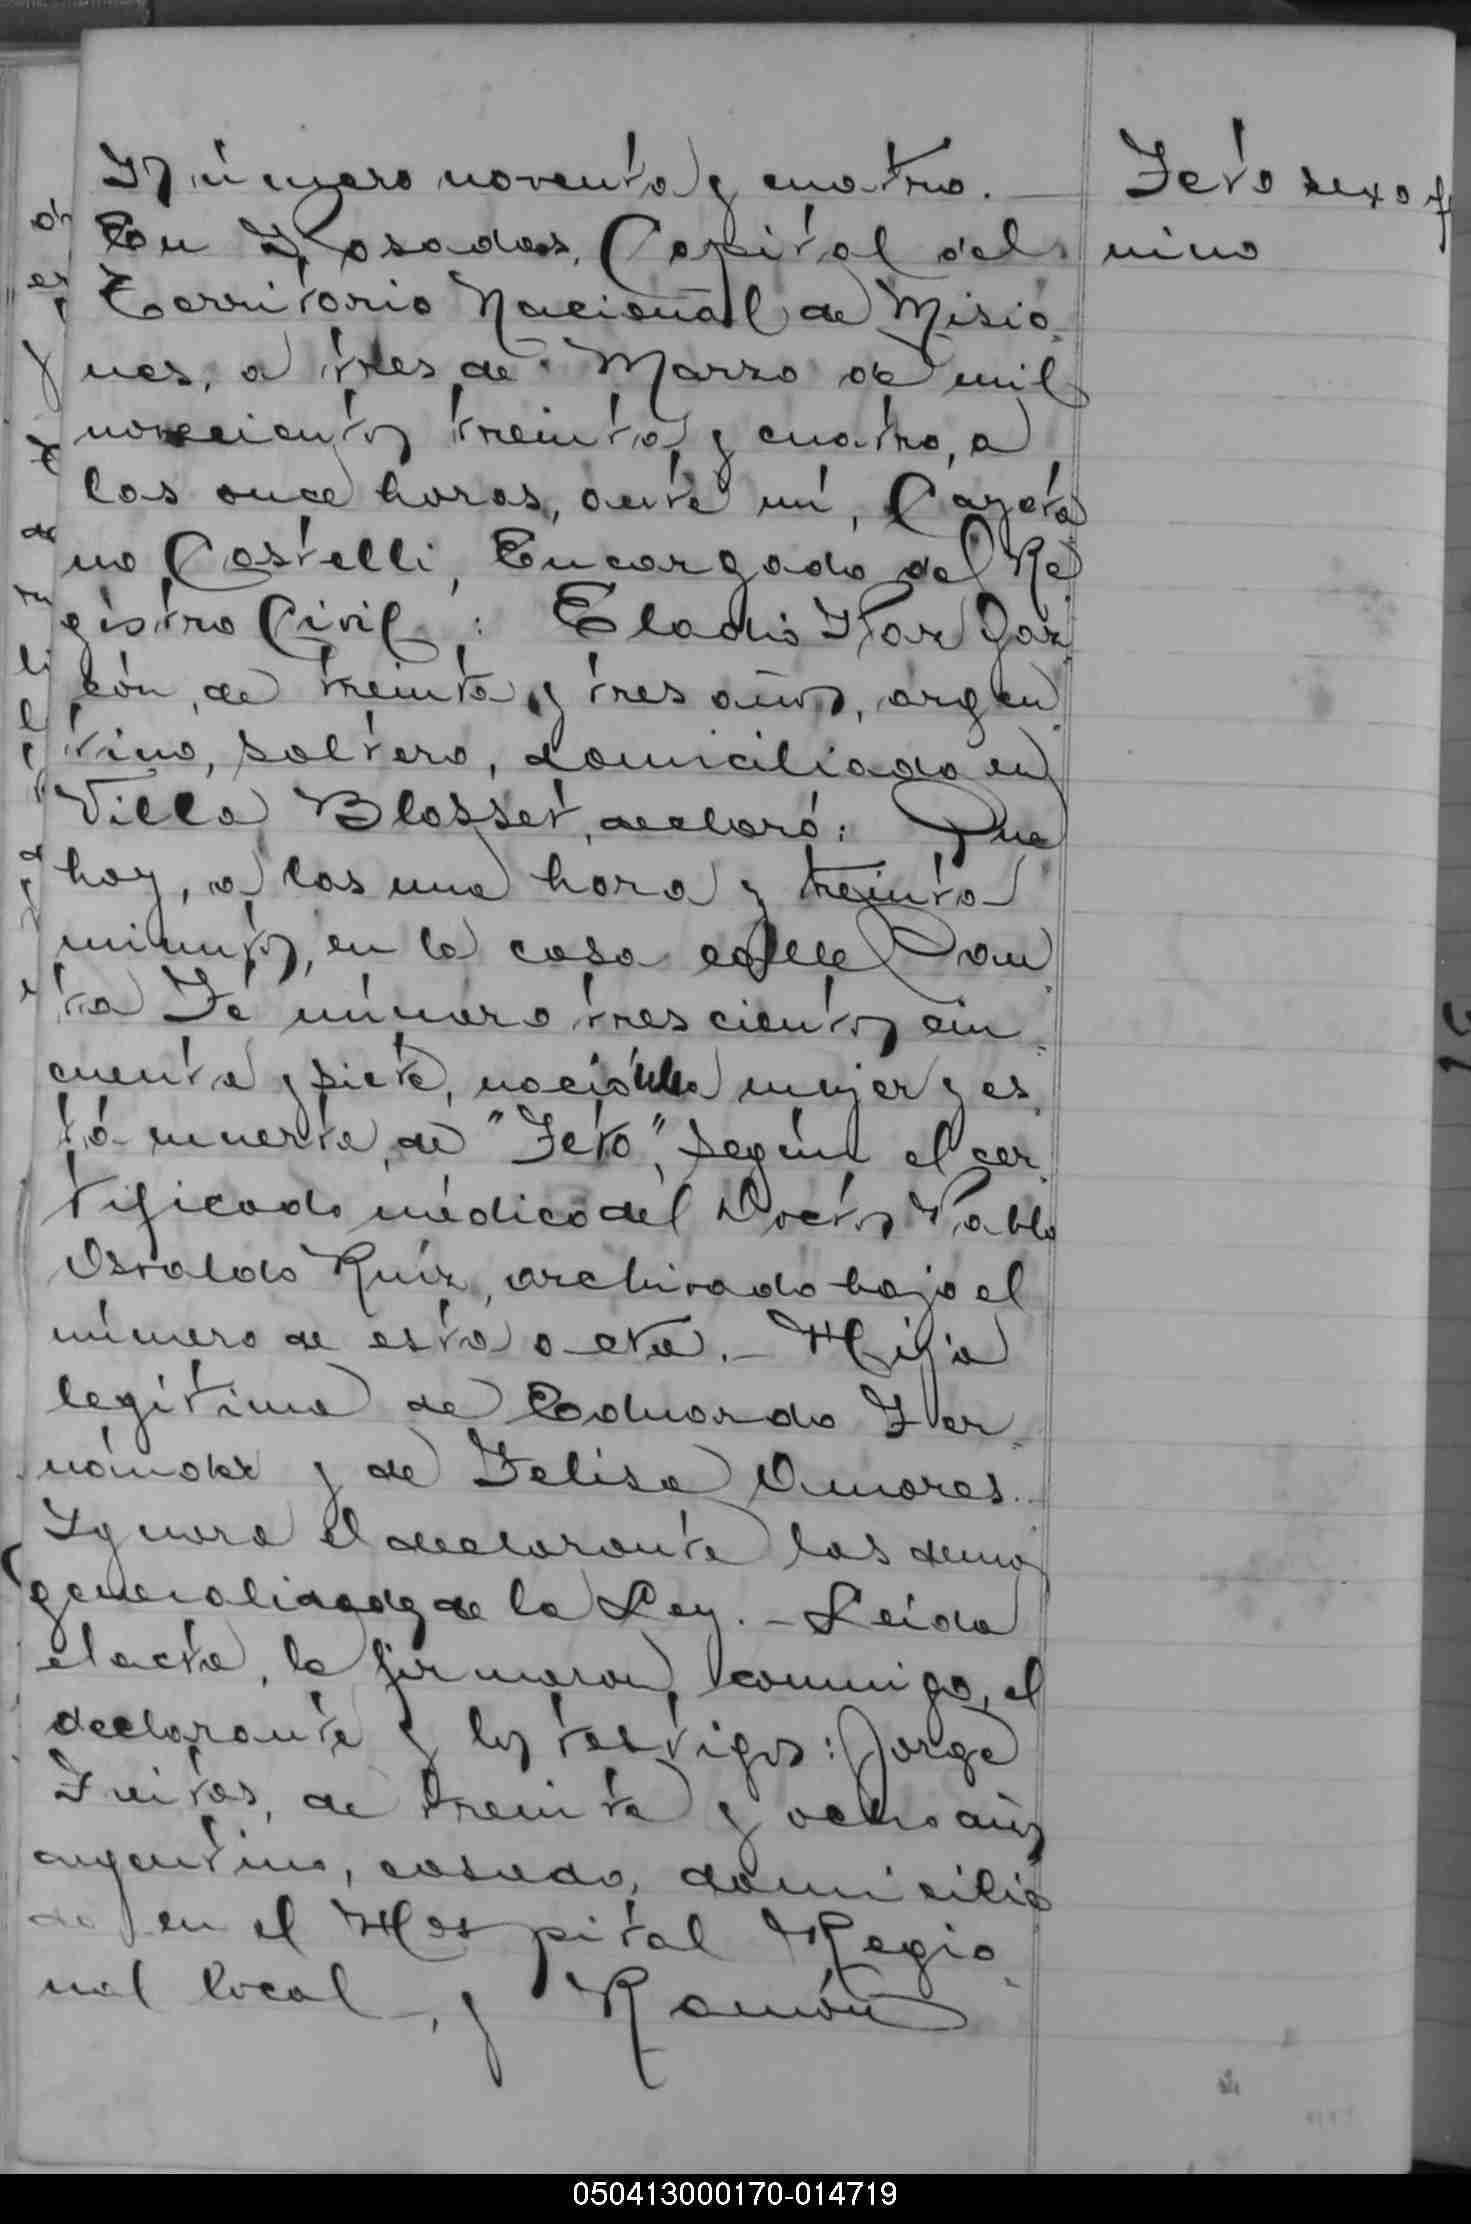 Número noventa y cuatro.
Feto sexo f
nino
En Posadas, Capital del
Territorio Nacional de Misio-
nes, a tres de Marzo de mil
novecientos treinta y cuatro, a
las once horas, ante mí, Cayeta
no Castelli, Encargado del Re
gistro Civil: Eladio
de treinta y tres años, argen
tino, soltero, domiciliado en
Villa Blosset, declaró: Que
hoy, a las una hora y treinta
minutos, en la casa calle San
ta Fé número trescientos cin-
cuenta y siete, nació una mujer y es
tá muerta, de "Feto", según el cer
tificado médico del Doctor Pablo
Osvaldo Ruíz, archivado bajo el
número de esta acta.- Hija
legítima de Eduardo Fer-
nández y de Felisa Amores.-
Ignora el declarante las demas
generalidades de la Ley.- Leída
el acta, la firmaron conmigo, el
declarante y los testigos: Jorge
de treinta y ocho años
argentino, casado, domicilia
do en el Hospital Regio-
nal local, y Ramón
050413000170-014719